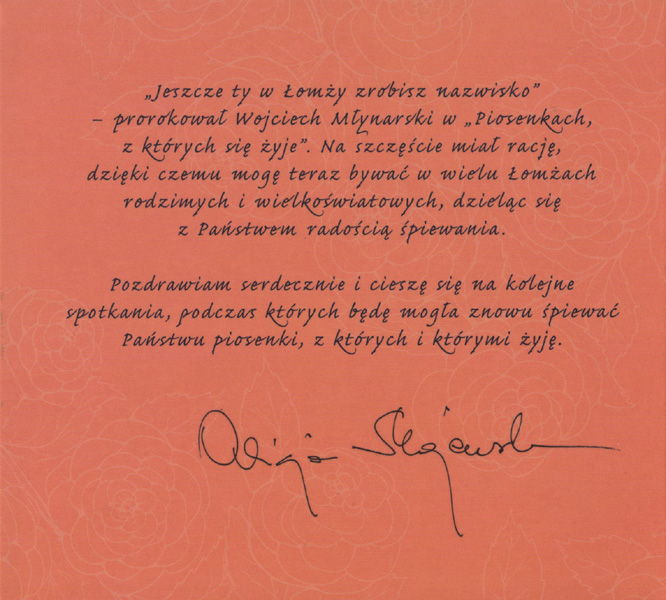 „Jeszcze ty w Łomży zrobisz nazwisko”
– prorokował Wojciech Młynarski w „Piosenkach,
z których się żyje”. Na szczęście miał rację,
dzięki czemu mogę teraz bywać w wielu Łomżach
rodzimych i wielkoświatowych, dzieląc się
z Państwem radością śpiewania.
Pozdrawiam serdecznie i cieszę się na kolejne
spotkania, podczas których będę mogła znowu śpiewać
Państwu piosenki, z których i którymi żyję.
Alicja Majewska